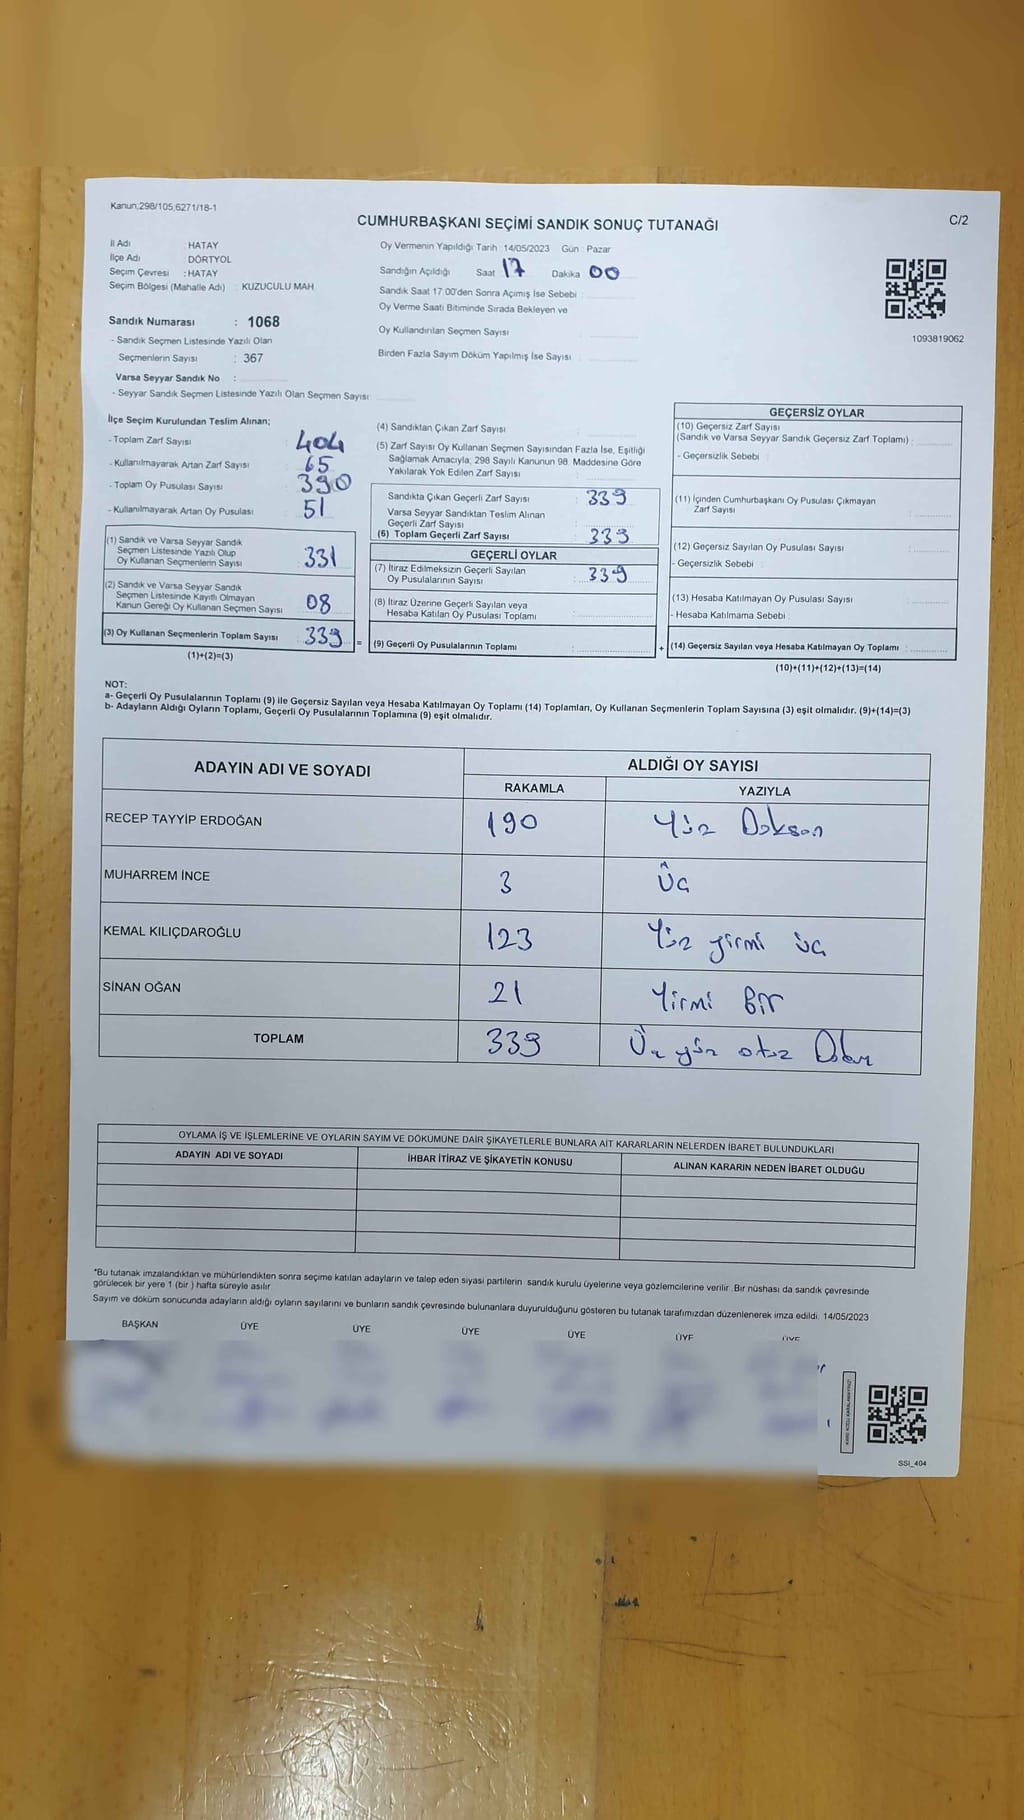 Kanun:298/105,6271/18-1
CUMHURBAŞKANI SEÇİMİ SANDIK SONUÇ TUTANAĞI
C/2
İl Adı : HATAY
İlçe Adı : DÖRTYOL
Seçim Çevresi : HATAY
Seçim Bölgesi (Mahalle Adı) : KUZUCULU MAH
Sandık Numarası : 1068
- Sandık Seçmen Listesinde Yazılı Olan
Seçmenlerin Sayısı : 367
Varsa Seyyar Sandık No :
- Seyyar Sandık Seçmen Listesinde Yazılı Olan Seçmen Sayısı:
Oy Vermenin Yapıldığı Tarih : 14/05/2023 Gün : Pazar
Sandığın Açıldığı Saat 17 Dakika 00
Sandık Saat 17:00'den Sonra Açımış İse Sebebi :
Oy Verme Saati Bitiminde Sırada Bekleyen ve
Oy Kullandırılan Seçmen Sayısı :
Birden Fazla Sayım Döküm Yapılmış İse Sayısı :
1093819062
İlçe Seçim Kurulundan Teslim Alınan;
- Toplam Zarf Sayısı : 404
- Kullanılmayarak Artan Zarf Sayısı : 65
- Toplam Oy Pusulası Sayısı : 390
- Kullanılmayarak Artan Oy Pusulası : 51
(1) Sandık ve Varsa Seyyar Sandık
Seçmen Listesinde Yazılı Olup
Oy Kullanan Seçmenlerin Sayısı : 331
(2) Sandık ve Varsa Seyyar Sandık
Seçmen Listesinde Kayıtlı Olmayan
Kanun Gereği Oy Kullanan Seçmen Sayısı : 08
(3) Oy Kullanan Seçmenlerin Toplam Sayısı : 339 =
(1)+(2)=(3)
(4) Sandıktan Çıkan Zarf Sayısı :
(5) Zarf Sayısı Oy Kullanan Seçmen Sayısından Fazla İse, Eşitliği
Sağlamak Amacıyla; 298 Sayılı Kanunun 98. Maddesine Göre
Yakılarak Yok Edilen Zarf Sayısı :
Sandıkta Çıkan Geçerli Zarf Sayısı : 339
Varsa Seyyar Sandıktan Teslim Alınan
Geçerli Zarf Sayısı :
(6) Toplam Geçerli Zarf Sayısı : 339
GEÇERLİ OYLAR
(7) İtiraz Edilmeksizin Geçerli Sayılan
Oy Pusulalarının Sayısı : 339
(8) İtiraz Üzerine Geçerli Sayılan veya
Hesaba Katılan Oy Pusulası Toplamı :
(9) Geçerli Oy Pusulalarının Toplamı : +
GEÇERSİZ OYLAR
(10) Geçersiz Zarf Sayısı
(Sandık ve Varsa Seyyar Sandık Geçersiz Zarf Toplamı) :
- Geçersizlik Sebebi :
(11) İçinden Cumhurbaşkanı Oy Pusulası Çıkmayan
Zarf Sayısı :
(12) Geçersiz Sayılan Oy Pusulası Sayısı :
- Geçersizlik Sebebi :
(13) Hesaba Katılmayan Oy Pusulası Sayısı :
- Hesaba Katılmama Sebebi :
(14) Geçersiz Sayılan veya Hesaba Katılmayan Oy Toplamı :
(10)+(11)+(12)+(13)=(14)
NOT:
a- Geçerli Oy Pusulalarının Toplamı (9) ile Geçersiz Sayılan veya Hesaba Katılmayan Oy Toplamı (14) Toplamları, Oy Kullanan Seçmenlerin Toplam Sayısına (3) eşit olmalıdır. (9)+(14)=(3)
b- Adayların Aldığı Oyların Toplamı, Geçerli Oy Pusulalarının Toplamına (9) eşit olmalıdır.
ADAYIN ADI VE SOYADI
ALDIĞI OY SAYISI
RAKAMLA YAZIYLA
RECEP TAYYİP ERDOĞAN 190 Yüz Doksan
MUHARREM İNCE 3 Üç
KEMAL KILIÇDAROĞLU 123 Yüz yirmi üç
SİNAN OĞAN 21 Yirmi Bir
TOPLAM 339 Üç yüz otuz Dokuz
OYLAMA İŞ VE İŞLEMLERİNE VE OYLARIN SAYIM VE DÖKÜMÜNE DAİR ŞİKAYETLERLE BUNLARA AİT KARARLARIN NELERDEN İBARET BULUNDUKLARI
ADAYIN ADI VE SOYADI İHBAR İTİRAZ VE ŞİKAYETİN KONUSU ALINAN KARARIN NEDEN İBARET OLDUĞU
*Bu tutanak imzalandıktan ve mühürlendikten sonra seçime katılan adayların ve talep eden siyasi partilerin sandık kurulu üyelerine veya gözlemcilerine verilir. Bir nüshası da sandık çevresinde
görülecek bir yere 1 (bir ) hafta süreyle asılır.
Sayım ve döküm sonucunda adayların aldığı oyların sayılarını ve bunların sandık çevresinde bulunanlara duyurulduğunu gösteren bu tutanak tarafımızdan düzenlenerek imza edildi. 14/05/2023
BAŞKAN ÜYE ÜYE ÜYE ÜYE ÜYE ÜYE
SSI_404